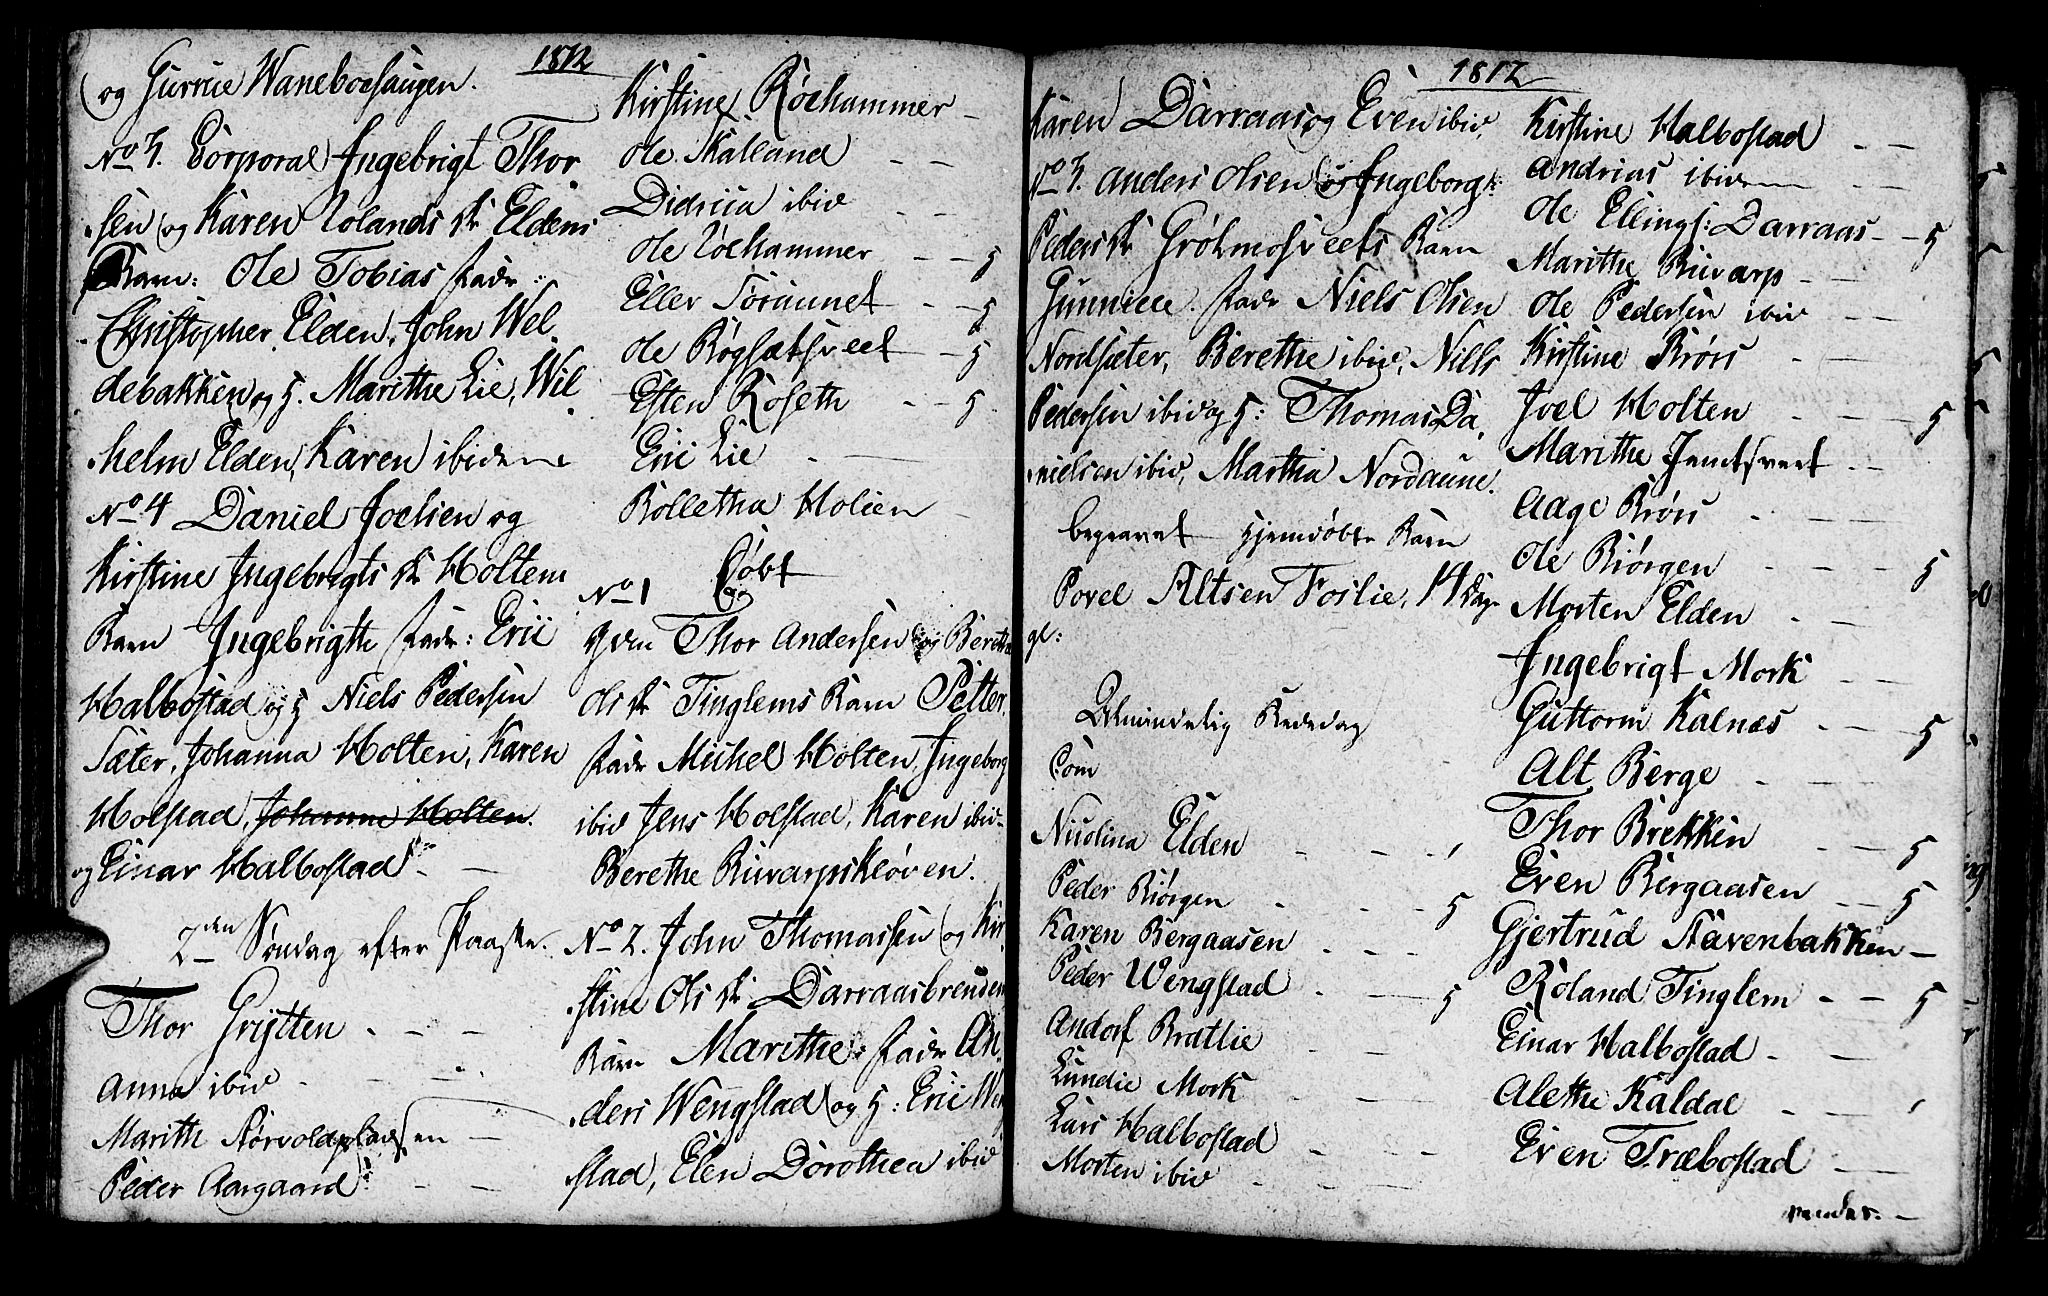 1812
og Gurrue Waneboehaugen.
No 3. Corporal Ingebrigt Thor
sen og Karen Rolands dr Eldens
Barn: Ole Tobias fadr:
Christopher Elden, John Wel
debakken og h. Marithe Lie, Wil
helm Elden, Karen ibidem
No 4 Daniel Joelsen og
Kirstine Ingebrigts dr Holtem
Barn Ingebrigth fadr: Eric
Halbostad og h Niels Pedersen
Sæter, Johanna Holten, Karen
Holstad, Johanna Holten.
og Einar Halbostad
2den Søndag efter Paaske.
Thor Grytten - - -
Anna ibid - - -
Marith Aarvoldpladsen -
Peder Aargaard - -
Kirstine Røehammer -
Ole Kalland - -
Didricia ibid - -
Ole Røehammer - - 5
Eller Toraunet - - 5
Ole Bøgsætsveet - 5
Esten Roseth - - 5
Eric Lie - -
Bolletha Holien -
Døbt
No 1
Gvn Thor Andersen og Bereth
Ols dr Tinglems Barn Petter.
fadr Michel Holten, Ingeborg
ibid Jens Holstad, Karen ibid
Berethe Ruvarpskløven.
No 2. John Thomassen og Kir
stine Ols dr Darraasbrenden
Barn Marithe: fadr An
ders Wengstad og h: Eric Wen
stad, Elen Dorothea ibid
1812
Karen Darraas og Even ibid.
No 3. Anders Olsen og Ingeborg
Peders dr Grøtmosveets Barn
Gunnille. fadr Niels Olsen
Nordsæter, Berethe ibid, Niels
Pedersen ibid og h: Thomas Da
nielsen ibid, Martha Nordaune.
begravet Hjemdøbte Barn
Povel Altsen Foslie, 14 Dage
gl:
Almindelig Bededag
Com
Nicolina Elden - - -
Peder Biørgen - - - 5
Karen Bergaasen - - -
Peder Wengstad - - 5
Andorf Bratlie - -
Lundie Mork - - -
Lars Halbostad - - -
Morten ibid - - -
Kirstine Halbostad - -
Andrias ibidem - -
Ole Ellings: Darraas - - 5
Marithe Ruvarp - -
Ole Pedersen ibid - -
Kirstine Brørs - -
Joel Holten - - - 5
Marithe Jemtsveet - -
Aage Brørs - - -
Ole Biørgen - - - 5
Morten Elden - -
Ingebrigt Mork - -
Guttorm Kalnæs - - 5
Alt Berge - - -
Thor Brekken - - 5
Even Bergaasen - - 5
Gjertrud Aavenbakken -
Roland Tinglem - - 5
Einar Halbostad - -
Alethe Kaldal - - -
Even Træbostad - -